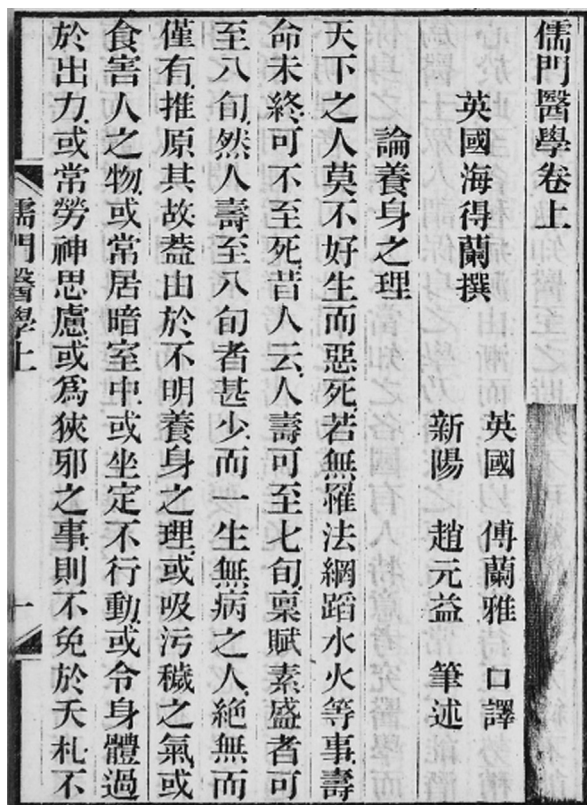 儒門醫學卷上
英國 傅蘭雅 口譯
英國海得蘭撰
新陽 趙元益 筆述
論養身之理
天下之人莫不好生而惡死若無罹法網蹈水火等事壽
命未終可不至死昔人云人壽可至七旬稟賦素盛者可
至八旬然人壽至八旬者甚少而一生無病之人絶無而
僅有推原其故葢由於不明養身之理或吸污穢之氣或
食害人之物或常居暗室中或坐定不行動或令身體過
於出力或常勞神思慮或爲狹邪之事則不免於夭札不
儒門醫學上
一